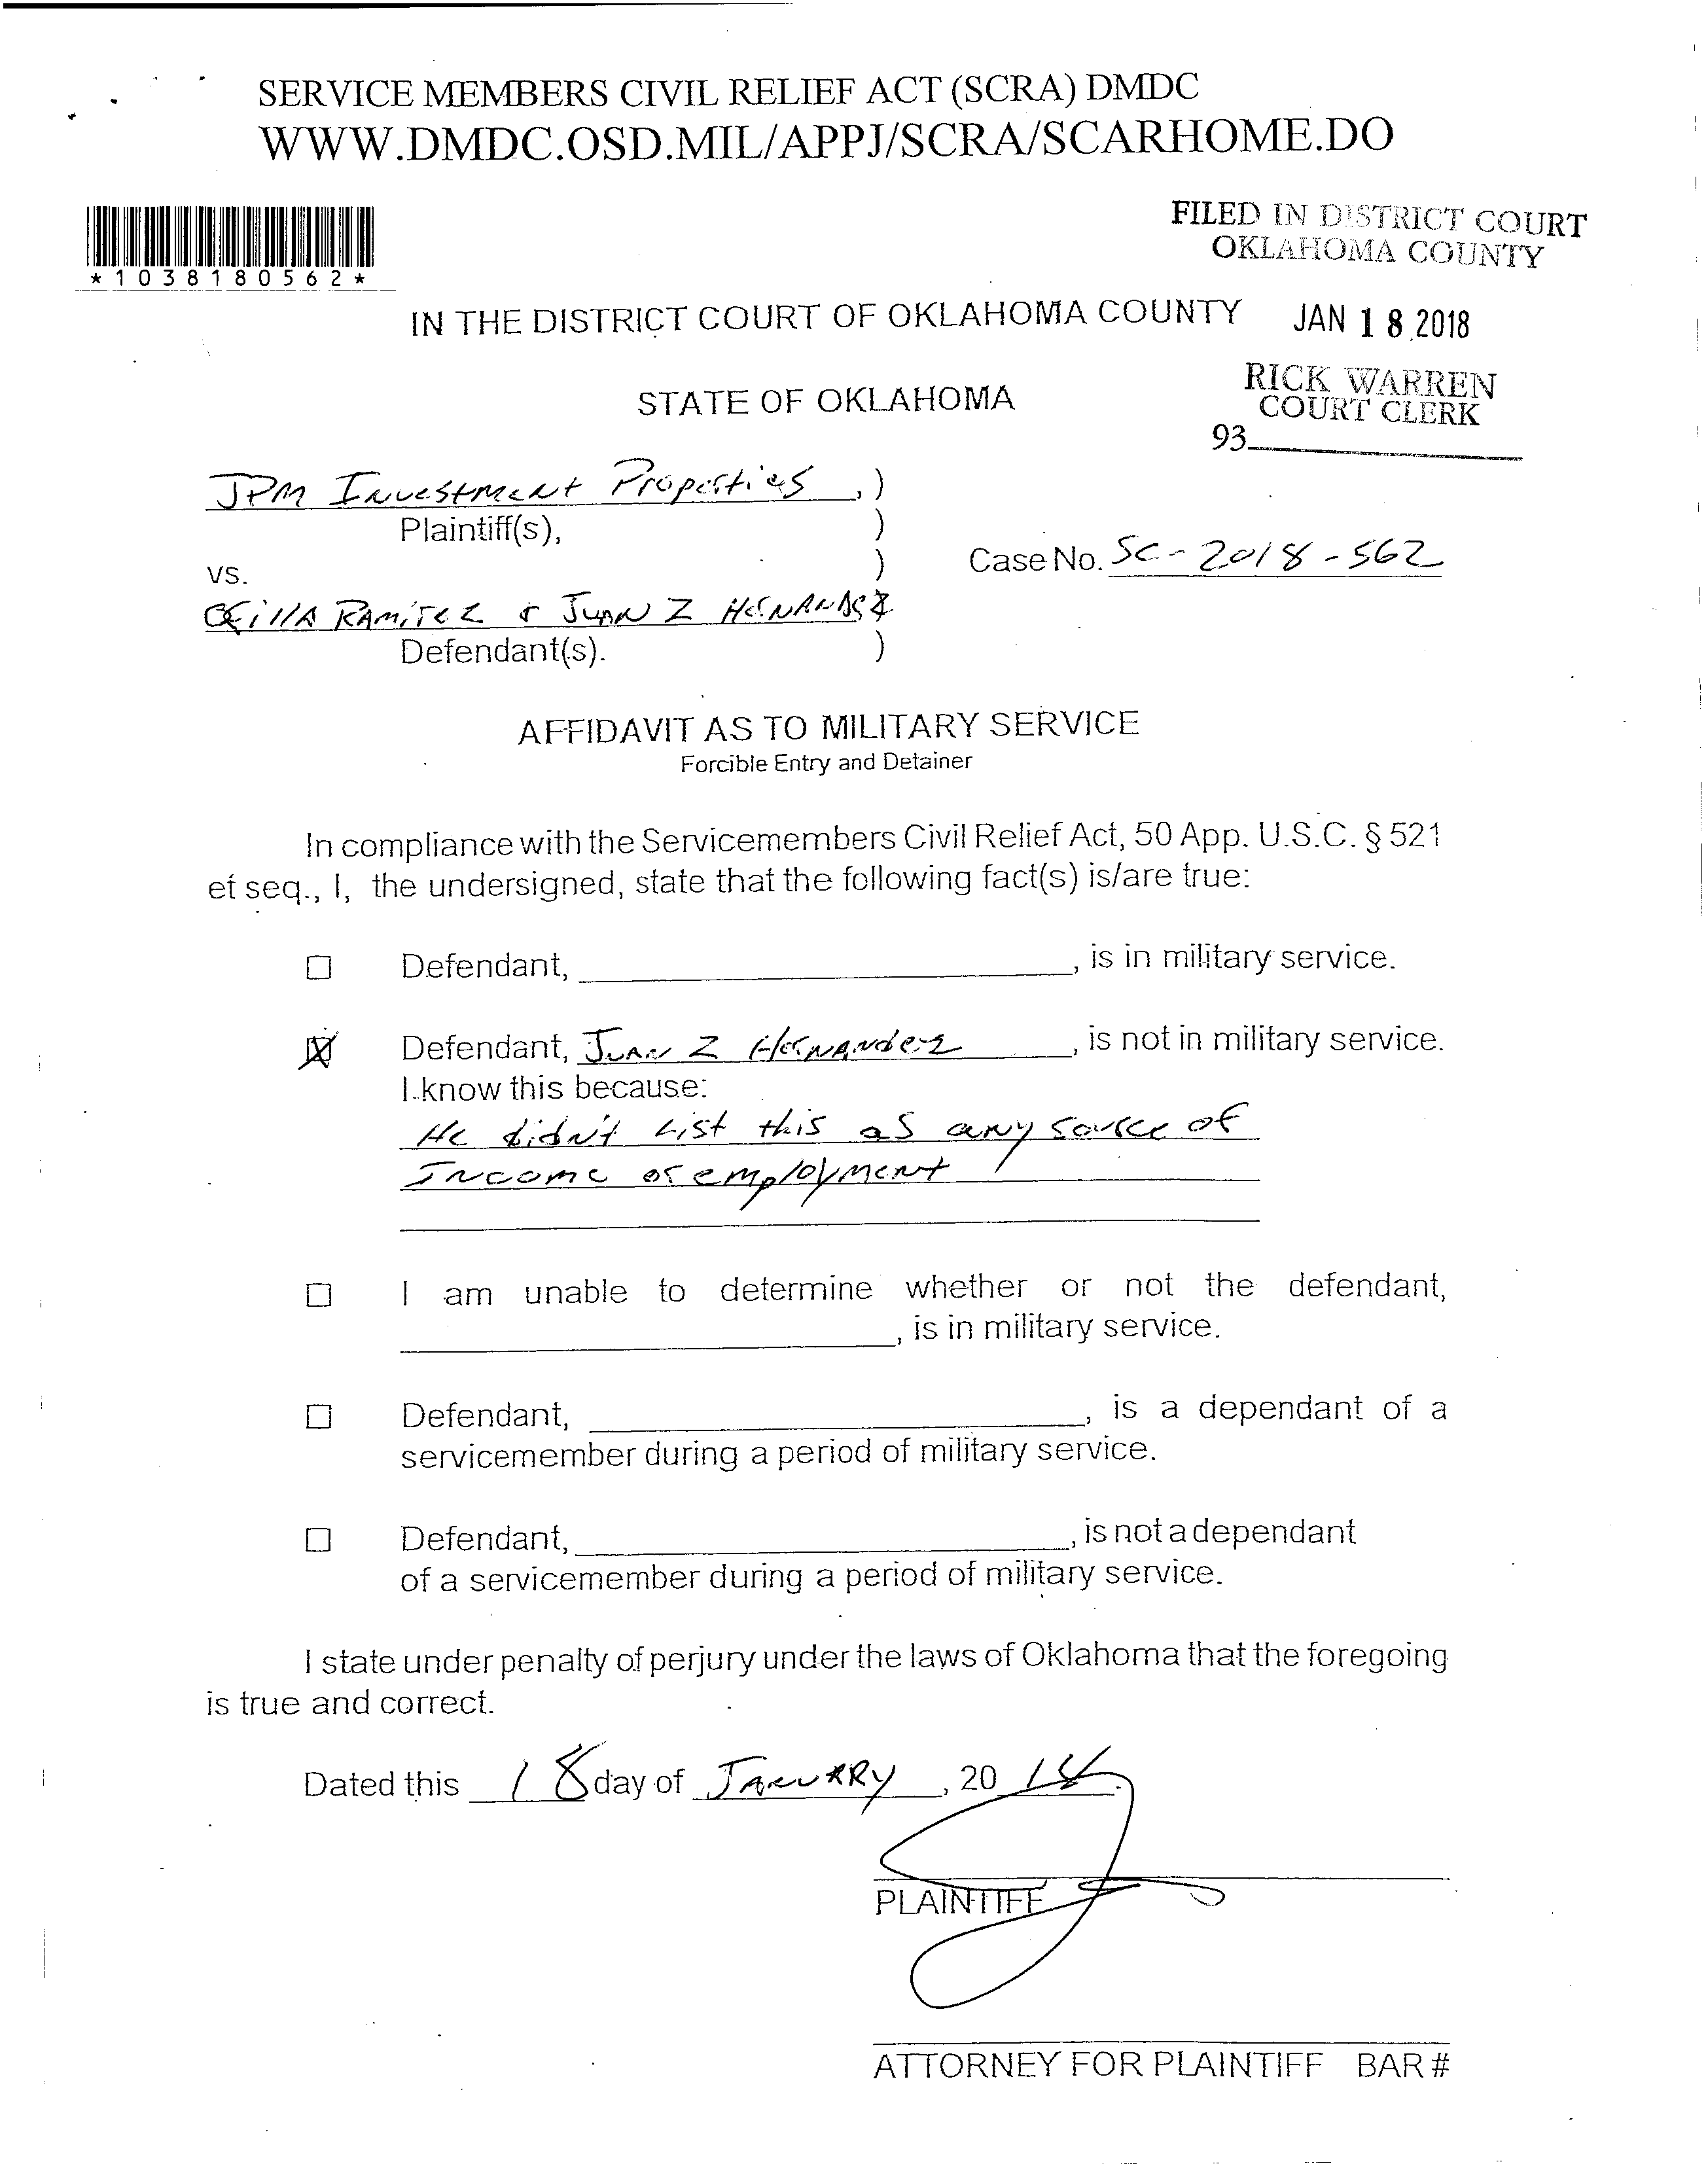 SERVICE MEMBERS CIVIL RELIEF ACT (SCRA) DMDC
WWW.DMDC.OSD.MIL/APPJ/SCRA/SCARHOME.DO
*1038180562*
FILED IN DISTRICT COURT
OKLAHOMA COUNTY
IN THE DISTRICT COURT OF OKLAHOMA COUNTY
JAN 18 2018
STATE OF OKLAHOMA
RICK WARREN
COURT CLERK
93
JPM Investment Properties, )
Plaintiff(s), )
vs. )
Case No. SC-2018-562
Ramirez & Juan Z Hernandez
Defendant(s). )
AFFIDAVIT AS TO MILITARY SERVICE
Forcible Entry and Detainer
In compliance with the Servicemembers Civil Relief Act, 50 App. U.S.C. § 521
et seq., I, the undersigned, state that the following fact(s) is/are true:
☐ Defendant, , is in military service.
☒ Defendant, Juan Z Hernandez, is not in military service.
I know this because:
He didn't List this as any source of
Income or employment
☐ I am unable to determine whether or not the defendant,
, is in military service.
☐ Defendant, , is a dependant of a
servicemember during a period of military service.
☐ Defendant, , is not a dependant
of a servicemember during a period of military service.
I state under penalty of perjury under the laws of Oklahoma that the foregoing
is true and correct.
Dated this 18 day of January, 20 18.
PLAINTIFF
ATTORNEY FOR PLAINTIFF BAR #